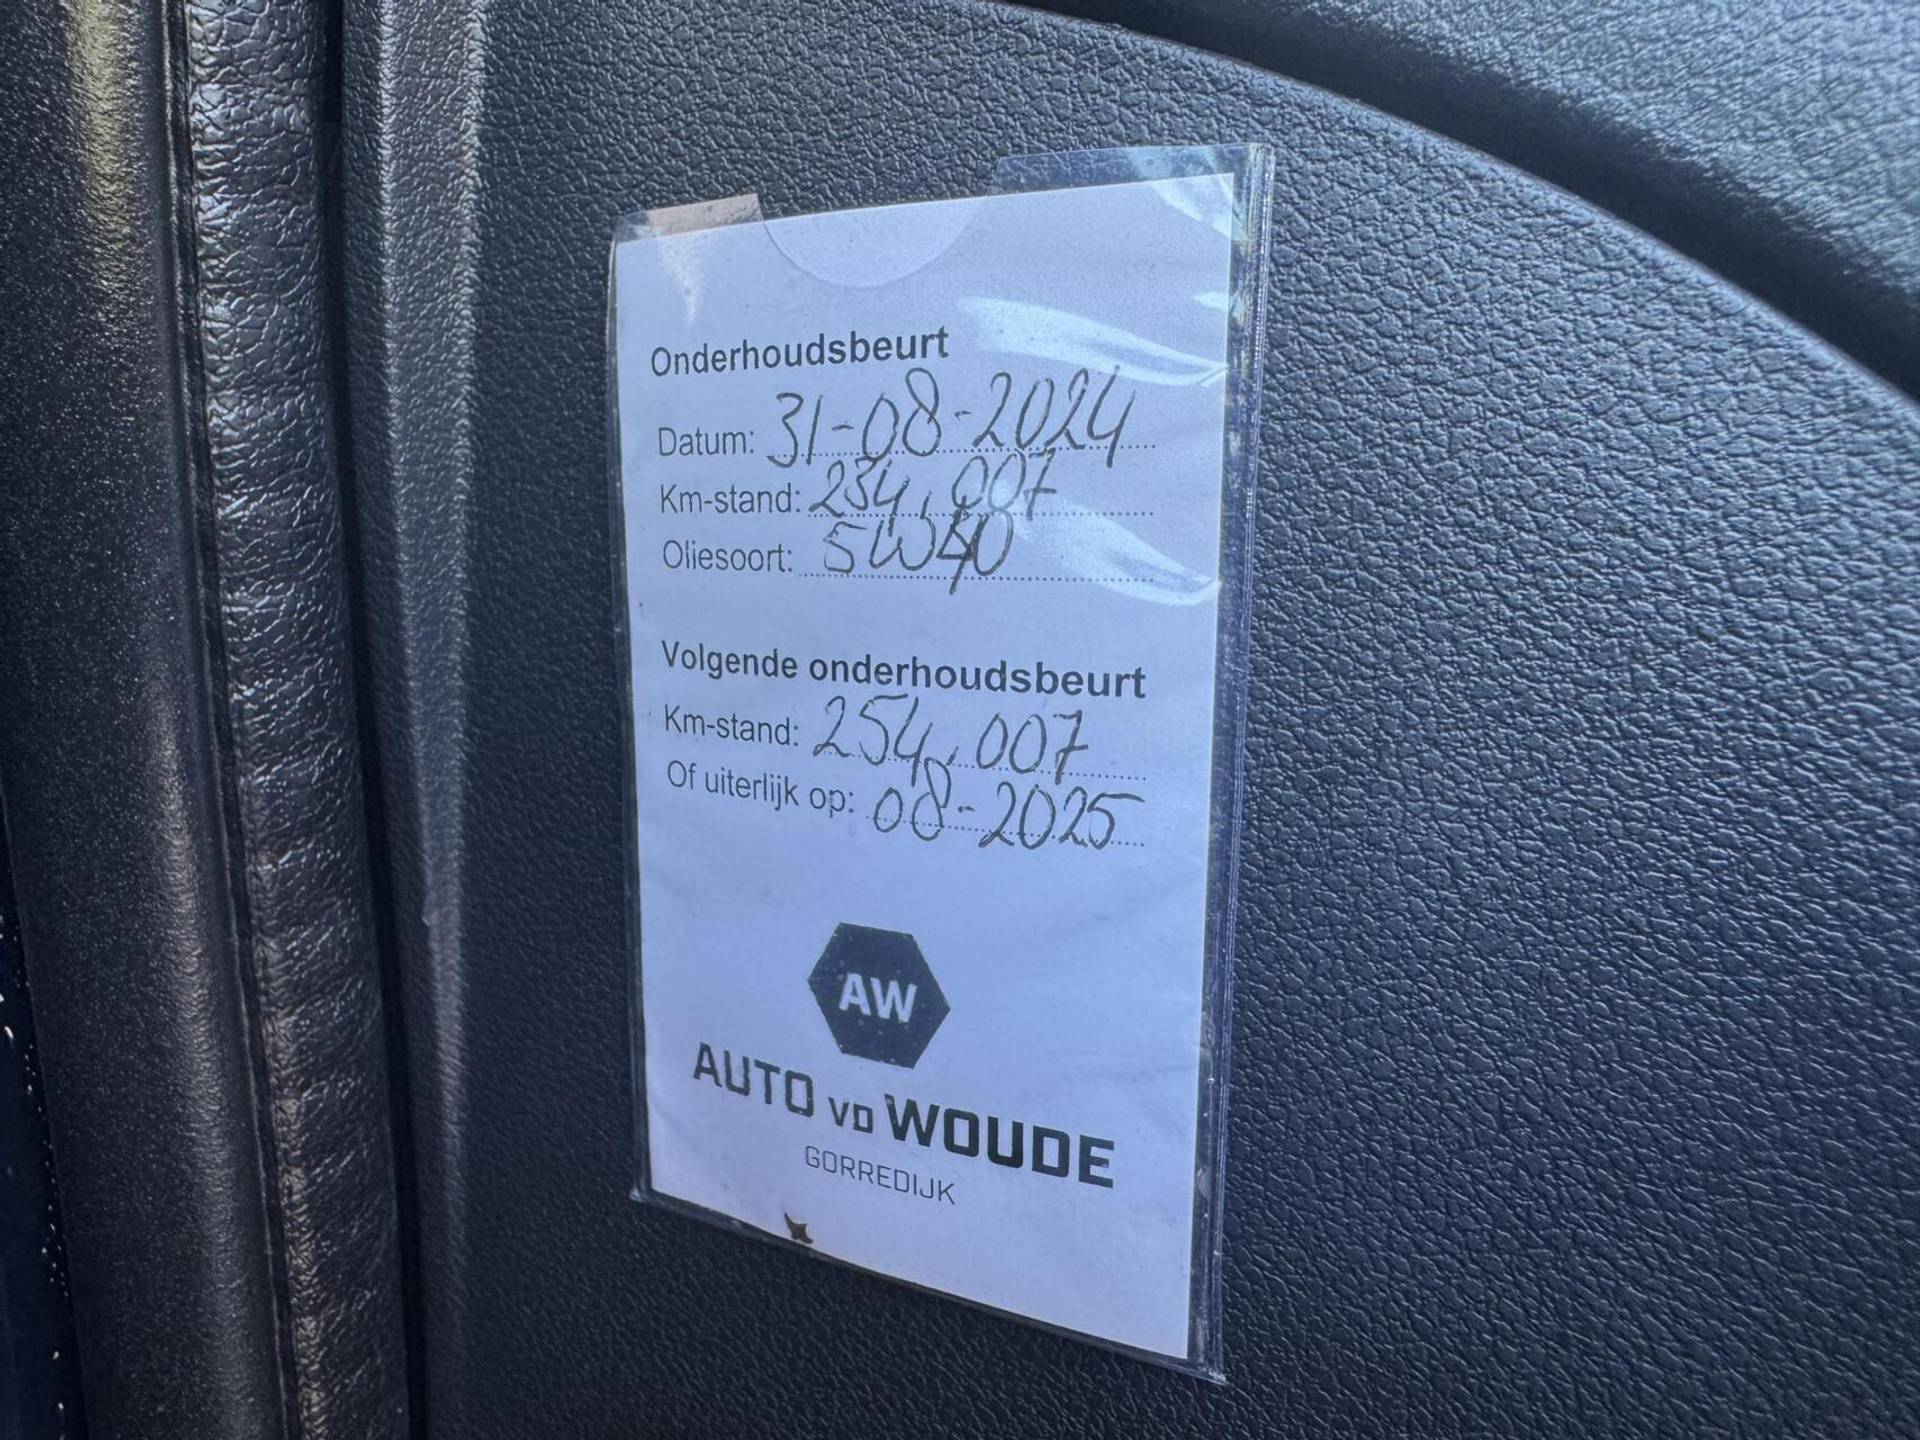 Onderhoudsbeurt
Datum: 31-08-2024
Km-stand: 234.007
Oliesoort: 5W40
Volgende onderhoudsbeurt
Km-stand: 254.007
Of uiterlijk op: 08-2025
AW
AUTO VD WOUDE
GORREDIJK